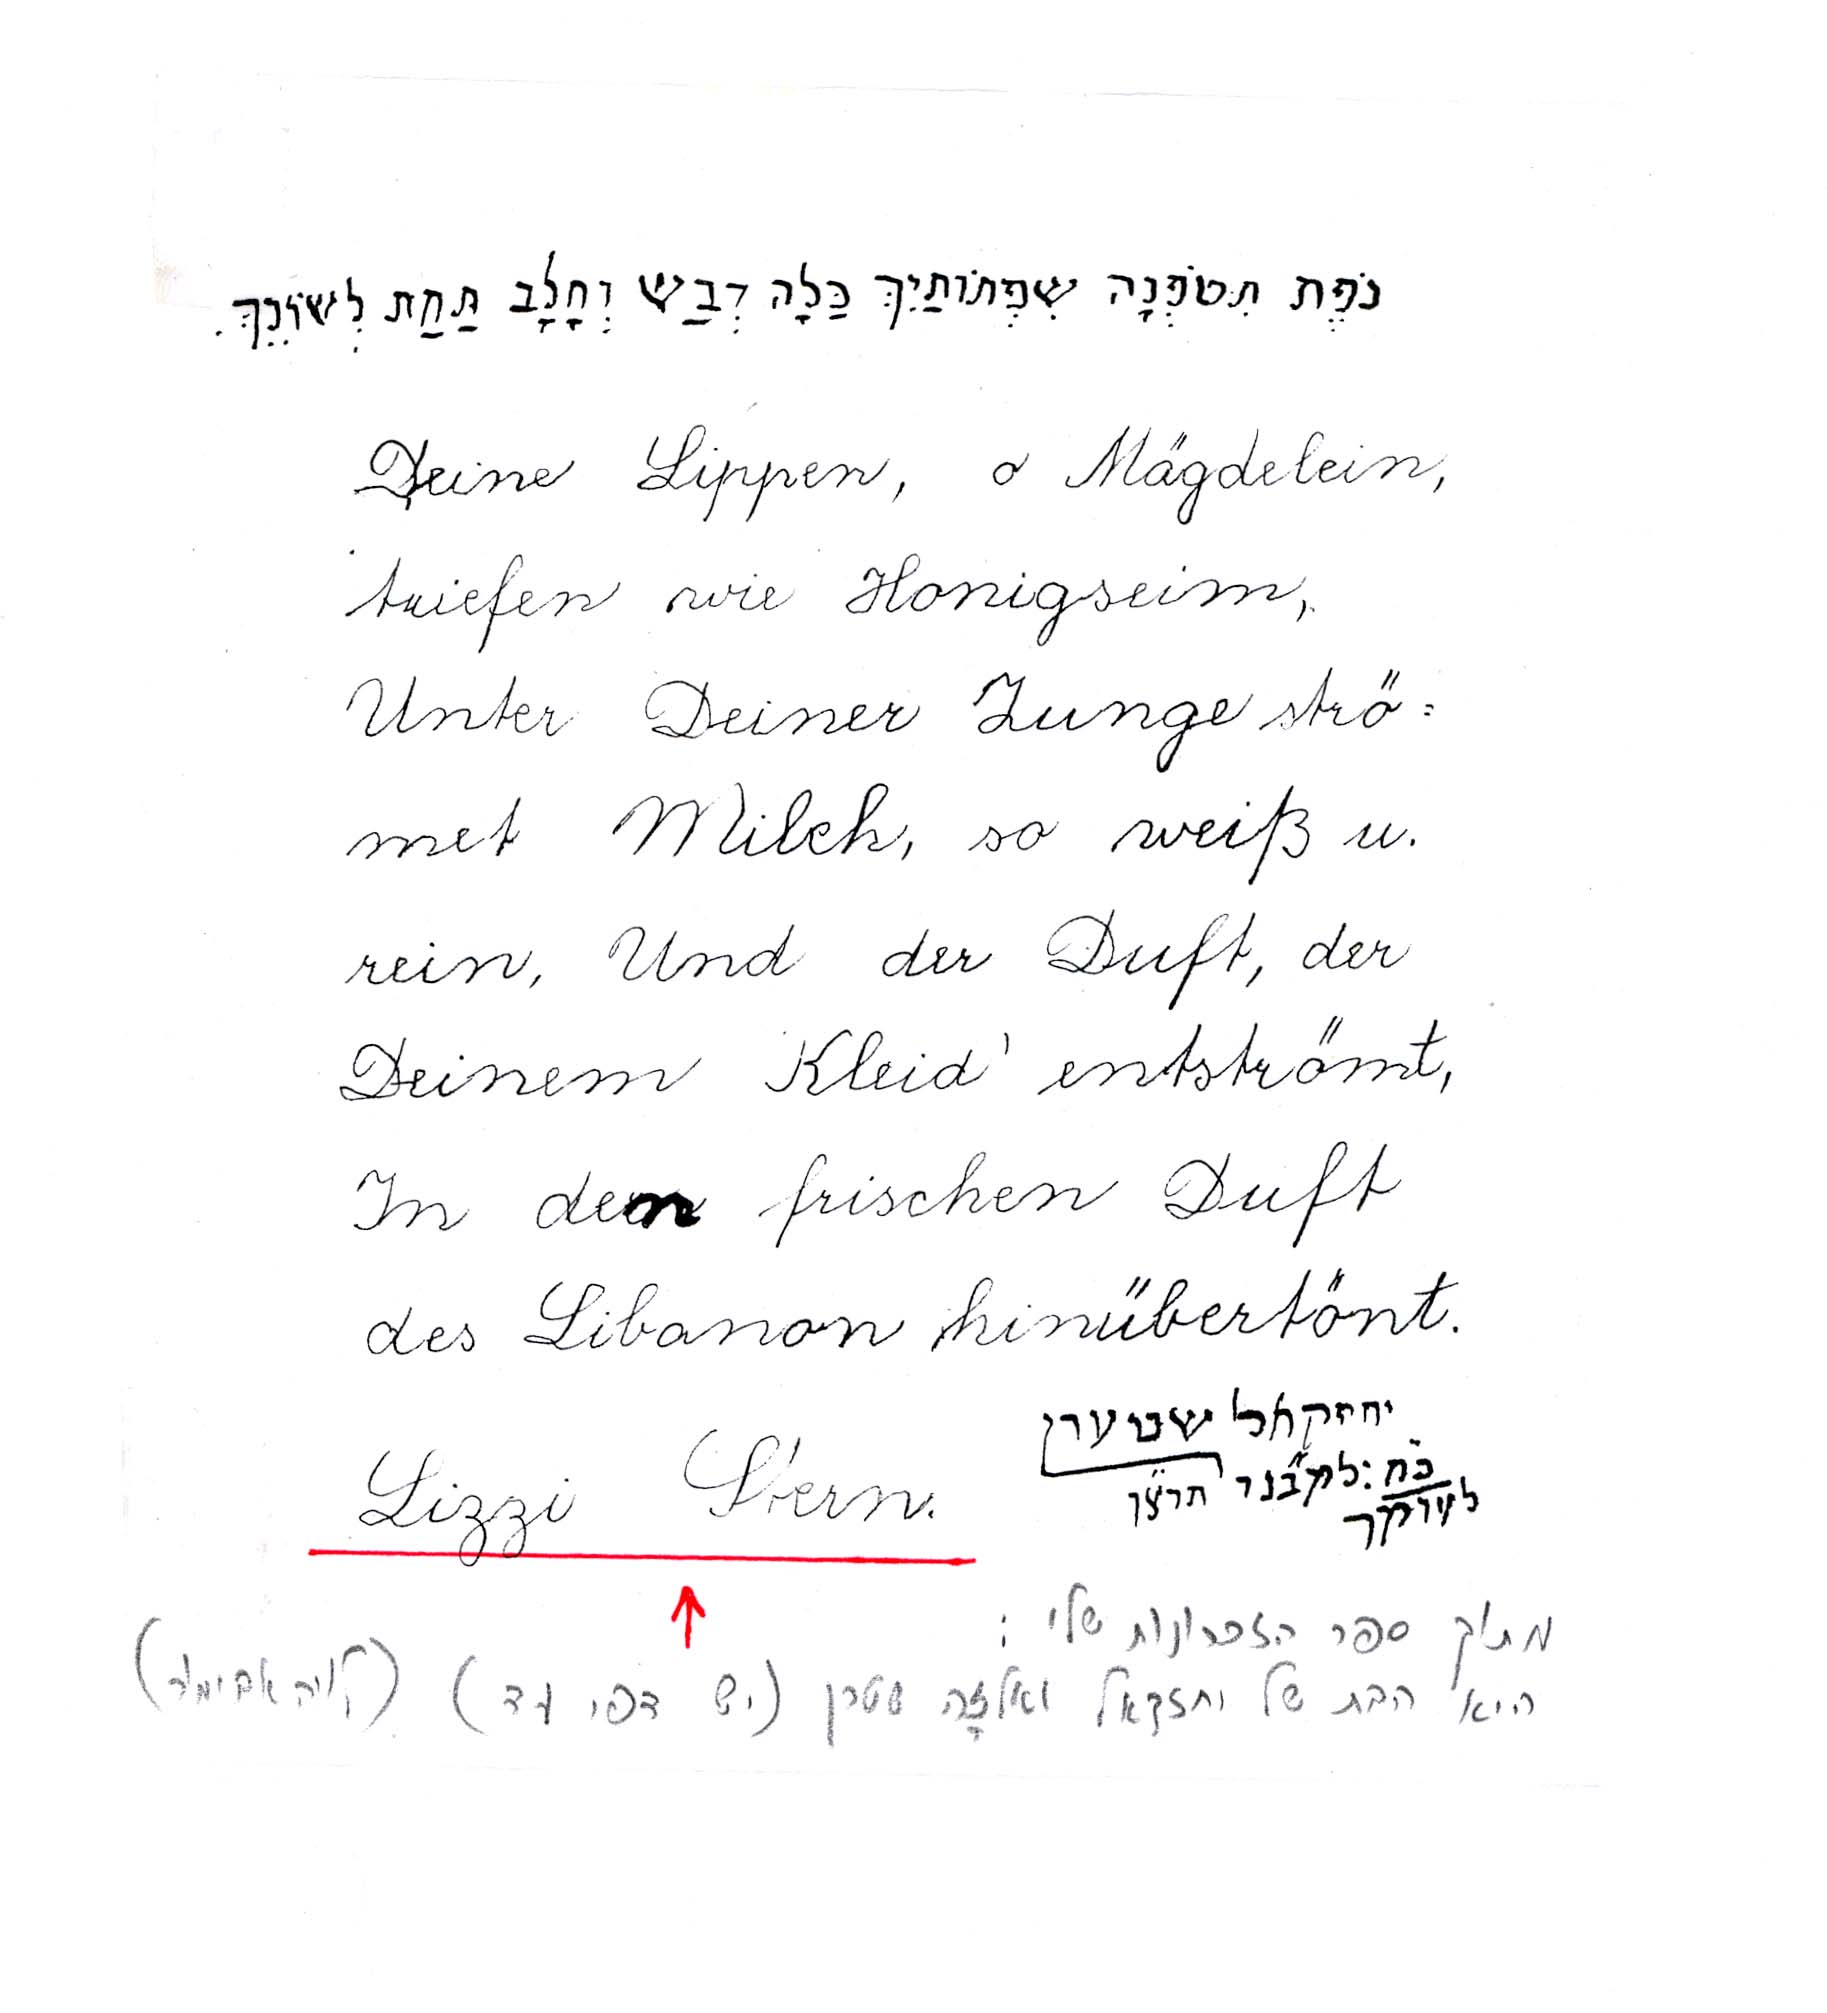 נֹפֶת תִּטֹּפְנָה שִׂפְתוֹתַיִךְ כַּלָּה דְּבַשׁ וְחָלָב תַּחַת לְשׁוֹנֵךְ.
Deine Lippen, o Mägdelein,
triefen wie Honigseim,
Unter Deiner Zunge strö=
met Milch, so weiß u.
rein, Und der Duft, der
Deinem Kleid' entströmt,
In den frischen Duft
des Libanon hinübertönt.
יחזקאל שטערן
כ"ח
תרצ"ו
Lizzi Stern.
מתוך ספר הזכרונות שלי:
היא הבת של יחזקאל ואלזָה שטרן (יש דפי עד)